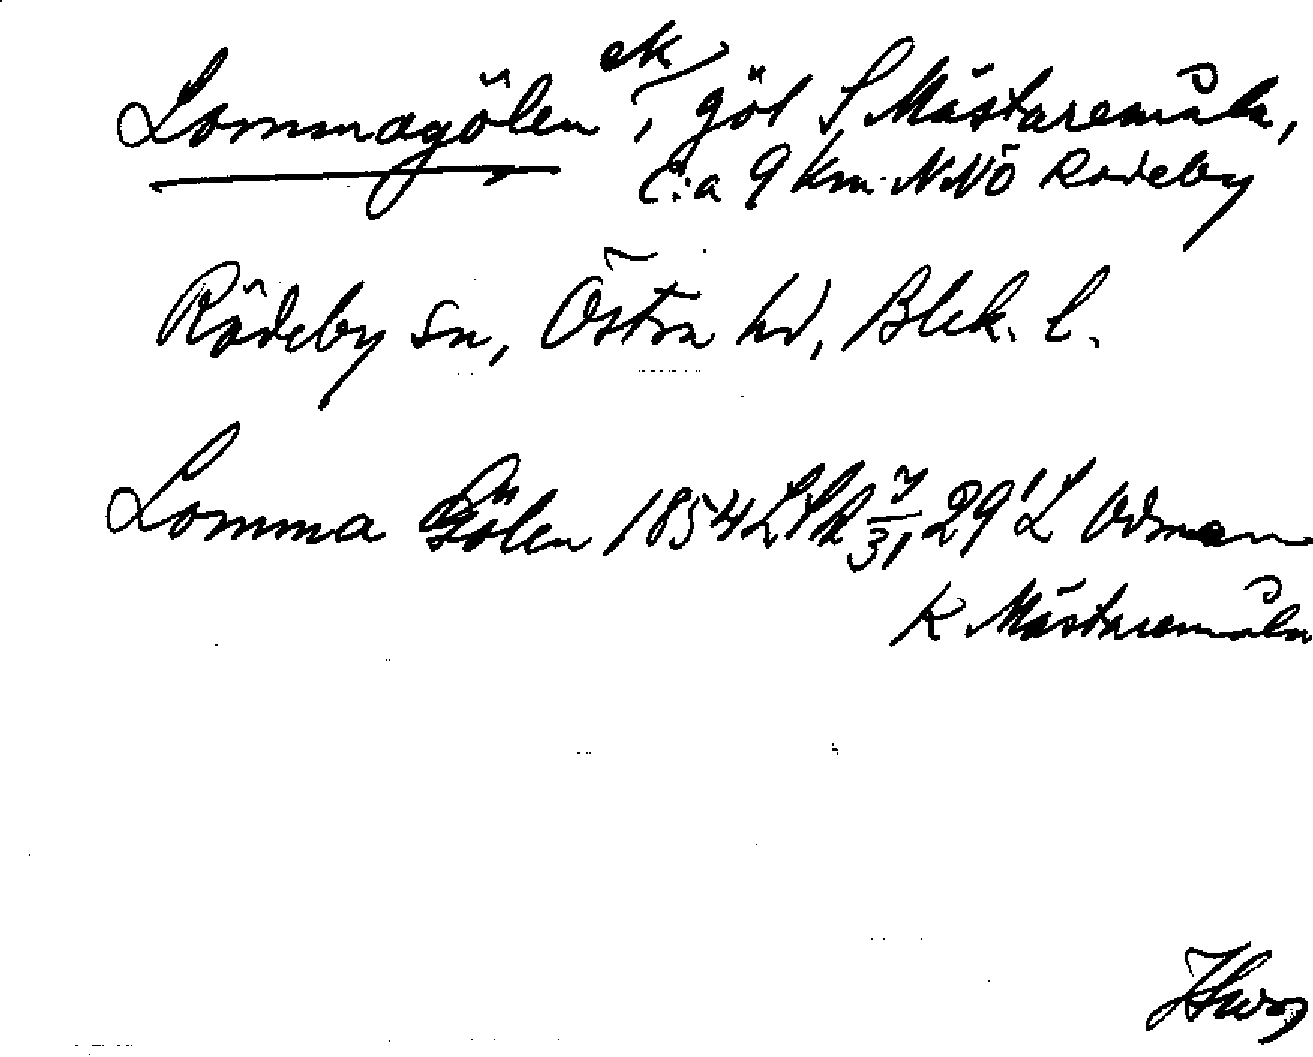 Lommagölen ek, göl S Mästaremåla,
C:a 9 km NNÖ Rödeby
Rödeby sn, Östra hd, Blek. l.
Lomma Gölen 1854 LSR 7/31 29 L Ödman
K Mästaremåla